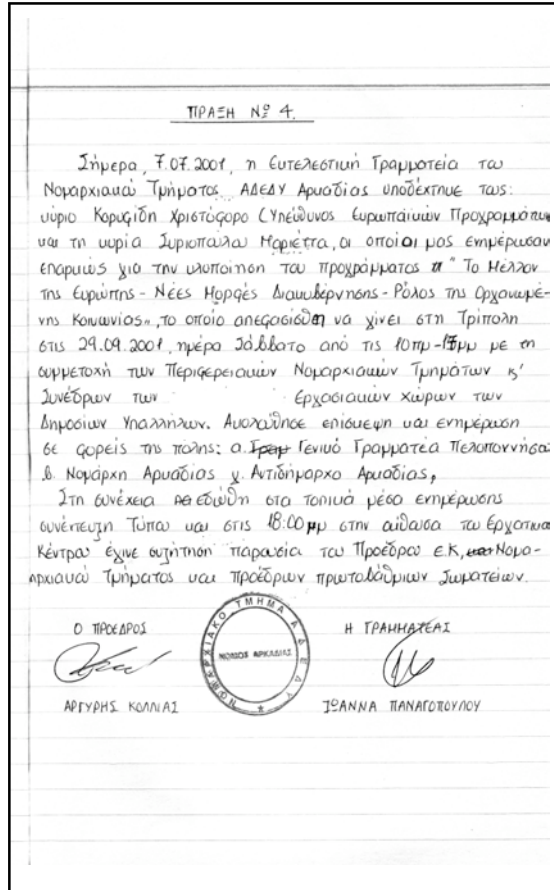 ΠΡΑΞΗ Νº 4.
Σήμερα, 7.07.2001, η Εκτελεστική Γραμματεία του
Νομαρχιακού Τμήματος ΑΔΕΔΥ Αρκαδίας υποδέχτηκε τους:
κύριο Κορυφίδη Χριστόφορο (Υπεύθυνος Ευρωπαϊκών Προγραμμάτων
και τη κυρία Συριοπούλου Μαριέττα, οι οποίοι μας ενημέρωσαν
επαρκώς για την υλοποίηση του προγράμματος " Το Μέλλον
της Ευρώπης - Νέες Μορφές Διακυβέρνησης - Ρόλος της Οργανωμέ-
νης Κοινωνίας", το οποίο απεφασίσθη να γίνει στη Τρίπολη
στις 29.09.2001, ημέρα Σάββατο από τις 10πμ-15μμ με τη
συμμετοχή των Περιφερειακών Νομαρχιακών Τμημάτων κ'
Συνέδρων των Εργασιακών χώρων των
Δημοσίων Υπαλλήλων. Ακολούθησε επίσκεψη και ενημέρωση
σε φορείς της πόλης: α. Γραμ Γενικό Γραμματέα Πελοποννήσου
β. Νομάρχη Αρκαδίας γ. Αντιδήμαρχο Αρκαδίας,
Στη συνέχεια εδώθη στα τοπικά μέσα ενημέρωσης
συνέντευξη Τύπου και στις 18:00μμ στην αίθουσα του Εργατικού
Κέντρου έγινε συζήτηση παρουσία του Προέδρου Ε.Κ, Νομα-
ρχιακού Τμήματος και προέδρων πρωτοβάθμιων Σωματείων.
Ο ΠΡΟΕΔΡΟΣ Η ΓΡΑΜΜΑΤΕΑΣ
ΝΟΜΑΡΧΙΑΚΟ ΤΜΗΜΑ ΑΔΕΔΥ
ΝΟΜΟΣ ΑΡΚΑΔΙΑΣ
ΑΡΓΥΡΗΣ ΚΟΛΛΙΑΣ ΙΩΑΝΝΑ ΠΑΝΑΓΟΠΟΥΛΟΥ